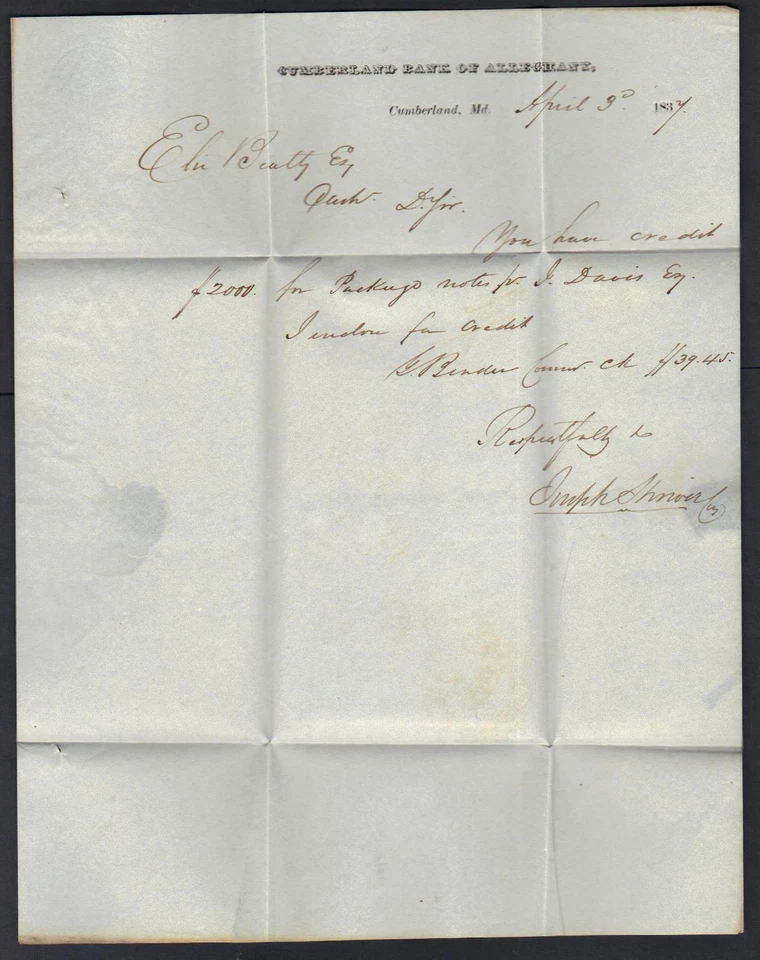 CUMBERLAND BANK OF ALLEGHANY,
Cumberland, Md. April 3d 1837.
Eli Beatty Esq
Cashr. D. Sir.
You have credit
$2000. for Package notes pr. J. Davis Esq.
I enclose for credit
G. Bender Commr. ck $39.45.
Respectfully &c
Joseph Shriver